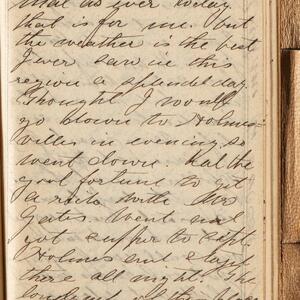 that is for me. but
the weather is the best
I ever saw in this
region a splendid day.
Thought I would
go down to Holmes-
ville in evening, so
went down. had the
good fortune to get
a ride with Mr
Gates. Went and
got supper to Capt.
Holmes and staid
there all night. The